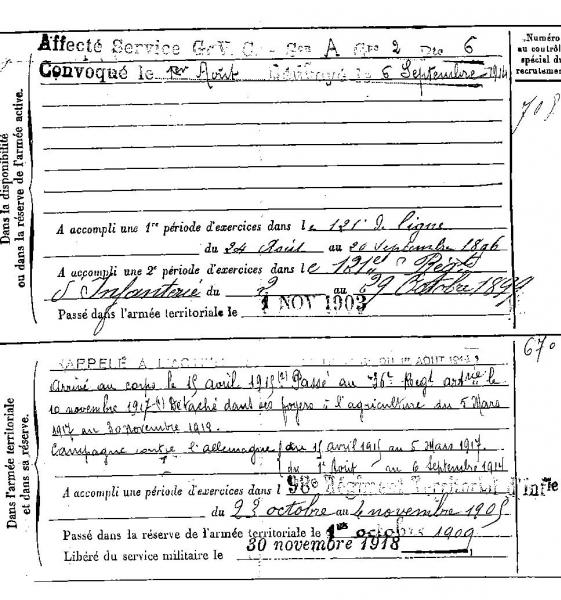 Affecté Service G. V. C. Son A Gpe 2 Pte 6
Convoqué le 1er Août Renvoyé le 6 Septembre 1914
Numéro
au contrôle
spécial du
recrutement
708
Dans la disponibilité
ou dans la réserve de l'armée active.
A accompli une 1re période d'exercices dans le 121e de ligne
du 24 Août au 20 Septembre 1896
A accompli une 2e période d'exercices dans le 121e Régt
d'Infanterie du 2 au 29 Octobre 1899
Passé dans l'armée territoriale le 1 NOV 1903
670
Dans l'armée territoriale
et dans sa réserve.
RAPPELÉ A L'ACTIVITÉ DU 1er AOUT 1914
Arrivé au corps le 15 avril 1915 (2) Passé au 36e Regt artrie le
10 novembre 1917 (1) Détaché dans ses foyers à l'agriculture du 5 Mars
1917 au 30 novembre 1918.
Campagne contre l'allemagne du 15 avril 1915 au 5 Mars 1917
du 1er Août au 6 Septembre 1914
A accompli une période d'exercices dans l 98e Régiment Territorial d'Infie
du 23 octobre au novembre 1905
Passé dans la réserve de l'armée territoriale le 1er octobre 1909
Libéré du service militaire le 30 novembre 1918